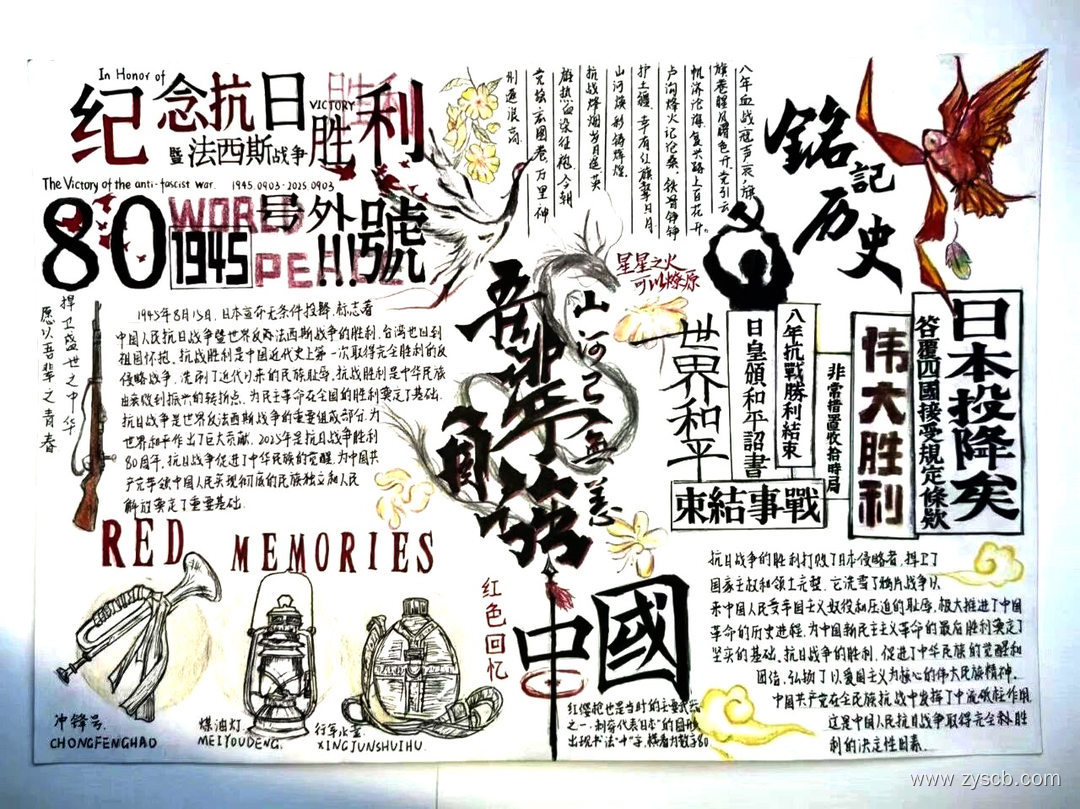 In Honor of
纪念抗日胜利
VICTORY
胜利
暨法西斯战争
The Victory of the anti-fascist war. 1945.0903-2025.0903
80
WORLD
PEACE
1945
号外!!!號
捍卫盛世之中华
愿以吾辈之青春
1945年8月15日,日本宣布无条件投降,标志着
中国人民抗日战争暨世界反法西斯战争的胜利,台湾也回到
祖国怀抱。抗战胜利是中国近代史上第一次取得完全胜利的反
侵略战争,洗刷了近代以来的民族耻辱。抗战胜利是中华民族
由衰败到振兴的转折点,为民主革命在全国的胜利奠定了基础.
抗日战争是世界反法西斯战争的重要组成部分,为
世界和平作出了巨大贡献。2025年是抗日战争胜利
80周年,抗日战争促进了中华民族的觉醒,为中国共
产党带领中国人民实现彻底的民族独立和人民
解放奠定了重要基础.
RED MEMORIES
冲锋号.
CHONGFENGHAO
煤油灯.
MEIYOUDENG.
行军水壶.
XINGJUNSHUIHU.
红色回忆
八年血战寇声哀,旗
卢沟烽火记沧桑,铁骨铮铮
护土疆,幸有红旗擎日月
山河焕彩铸辉煌.
抗战烽烟岁月遥,英
雄热血染征袍,今朝
星星之火
可以燎原
铭記历史
吾辈
中國
山河已無恙
世界和平
日皇頒和平詔書
八年抗戰勝利結束
非常措置收拾時局
伟大胜利
日本投降矣
答覆四國接受規定條款
束結事戰
抗日战争的胜利打败了日本侵略者,捍卫了
国家主权和领土完整,它洗雪了鸦片战争以
来中国人民受帝国主义奴役和压迫的耻辱,极大推进了中国
革命的历史进程,为中国新民主主义革命的最后胜利奠定了
坚实的基础。抗日战争的胜利,促进了中华民族的觉醒和
团结,弘扬了以爱国主义为核心的伟大民族精神。
中国共产党在全民族抗战中发挥了中流砥柱作用,
这是中国人民抗日战争取得完全胜
利的决定性因素.
红缨枪也是当时的主要武器
之一,刺穿代表日本的图形
出现书法"中"字,横看为数字80
www.zyscb.com